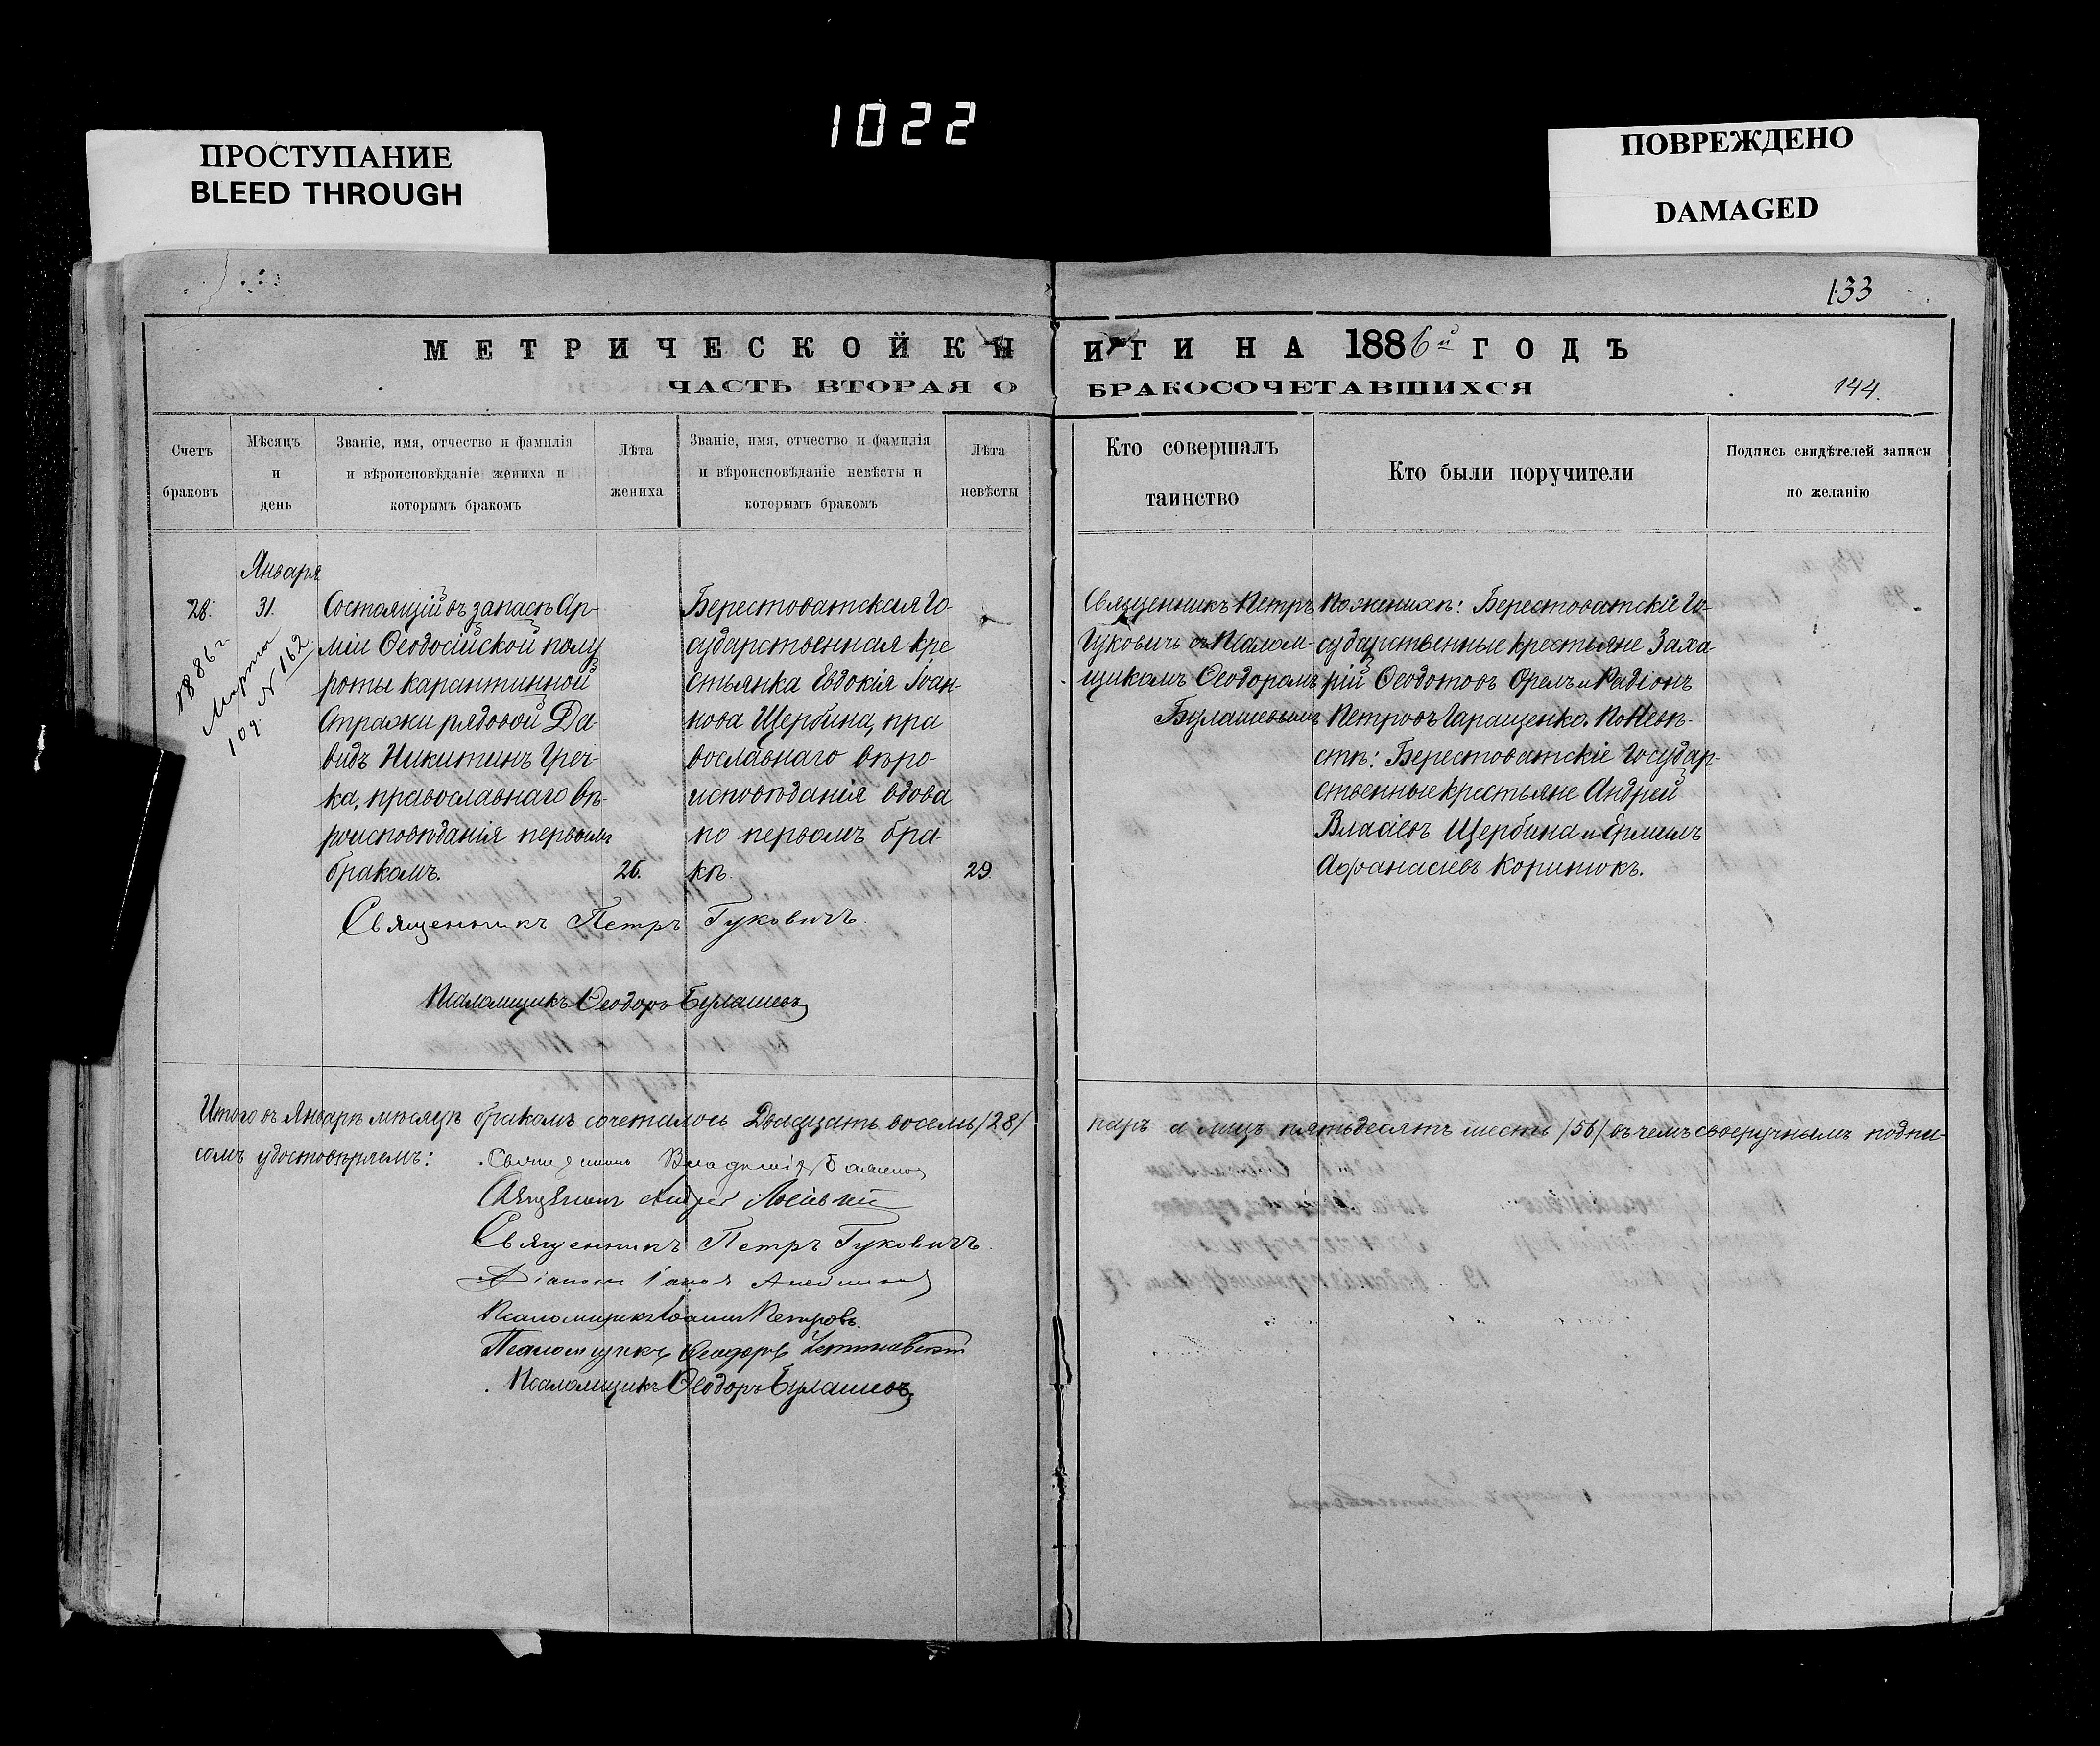 1022
ПРОСТУПАНИЕ
BLEED THROUGH
ПОВРЕЖДЕНО
DAMAGED
133
МЕТРИЧЕСКОЙ КНИГИ НА 1886й ГОДЪ
ЧАСТЬ ВТОРАЯ О БРАКОСОЧЕТАВШИХСЯ
144.
Счетъ
браковъ
Мѣсяцъ
и
день
Званіе, имя, отчество и фамилія
и вѣроисповѣданіе жениха и
которымъ бракомъ
Лѣта
жениха
Званіе, имя, отчество и фамилія
и вѣроисповѣданіе невѣсты и
которымъ бракомъ
Лѣта
невѣсты
Кто совершалъ
таинство
Кто были поручители
Подпись свидѣтелей записи
по желанію
28.
1886 г.
Марта
10 д. № 162
Января
31.
Состоящій въ запасѣ Ар-
міи Ѳеодосійской полу
роты карантинной
Стражи рядовой Да-
видъ Никитинъ Греч-
ка, православнаго вѣ-
роисповѣданія первымъ
бракомъ.
26.
Берестоватская Го-
сударственная кре
стьянка Евдокія Іоан-
нова Щербина, пра
вославнаго вѣро-
исповѣданія вдова
по первомъ бра-
кѣ.
29.
Священникъ Петръ
Гуковичъ съ Псалом-
щикомъ Ѳеодоромъ
Булашевымъ
По женихѣ: Берестоватскіе Го-
сударственные крестьяне Заха-
рій Ѳеодотовъ Орелъ и Радіонъ
Петровъ Гаращенко. По Невѣ-
стѣ: Берестоватскіе Государ-
ственные крестьяне Андрей
Власіевъ Щербина и Ермилъ
Аѳанасіевъ Коринюкъ.
Священникъ Петръ Гуковичъ.
Псаломщикъ Ѳеодоръ Булашевъ
Итого въ Январѣ мѣсяцѣ бракомъ сочеталось Двадцать восемь /28/ паръ а лицъ пятьдесятъ шесть /56/ въ чемъ своеручнымъ подпи-
сомъ удостовѣряемъ:
Священникъ
Священникъ Андрей
Священникъ Петръ Гуковичъ.
Діаконъ
Псаломщикъ Іоаннъ Петровъ.
Псаломщикъ Ѳеодоръ
Псаломщикъ Ѳеодоръ Булашевъ